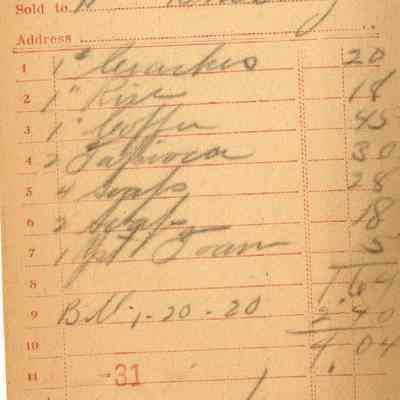 Sold to
Address
1 1# Crackers 20
2 1" Rice 18
3 1" Coffee 45
4 2 Tapioca 30
5 4 Soaps 28
6 2 Soaps 18
7 1 5
8 1 64
9 Bill 1-20-20 2.40
10 4.04
11 31